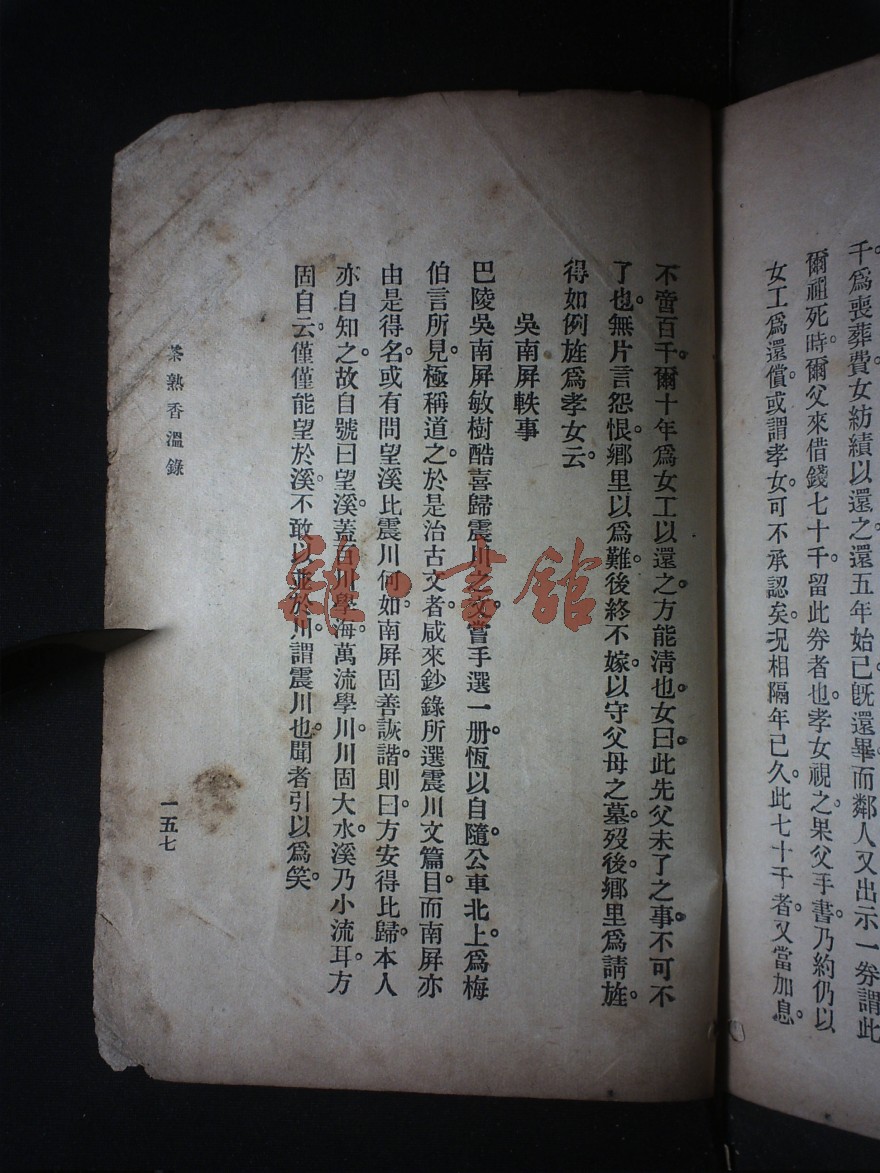 千。爲喪葬費。女紡績以還之。還五年始已。旣還畢。而鄰人又出示一券。謂此
爾祖死時。爾父來借錢七十千。留此券者也。孝女視之。果父手書。乃約仍以
女工爲還償。或謂孝女。可不承認矣。况相隔年已久。此七十千者。又當加息。
不啻百千。爾十年爲女工以還之。方能淸也。女曰。此先父未了之事。不可不
了也。無片言怨恨。鄕里以爲難。後終不嫁。以守父母之墓。歿後。鄕里爲請旌。
得如例旌爲孝女云。
吳南屏軼事
巴陵吳南屏敏樹酷喜歸震川之文。嘗手選一册。恆以自隨。公車北上。爲梅
伯言所見。極稱道之。於是治古文者。咸來鈔錄所選震川文篇目。而南屏亦
由是得名。或有問望溪比震川何如。南屏固善詼諧。則曰。方安得比歸。本人
亦自知之。故自號曰望溪。蓋百川學海。萬流學川。川固大水。溪乃小流耳。方
固自云。僅僅能望於溪。不敢以並於川。謂震川也。聞者引以爲笑。
茶熟香溫錄
一五七
雜·書館